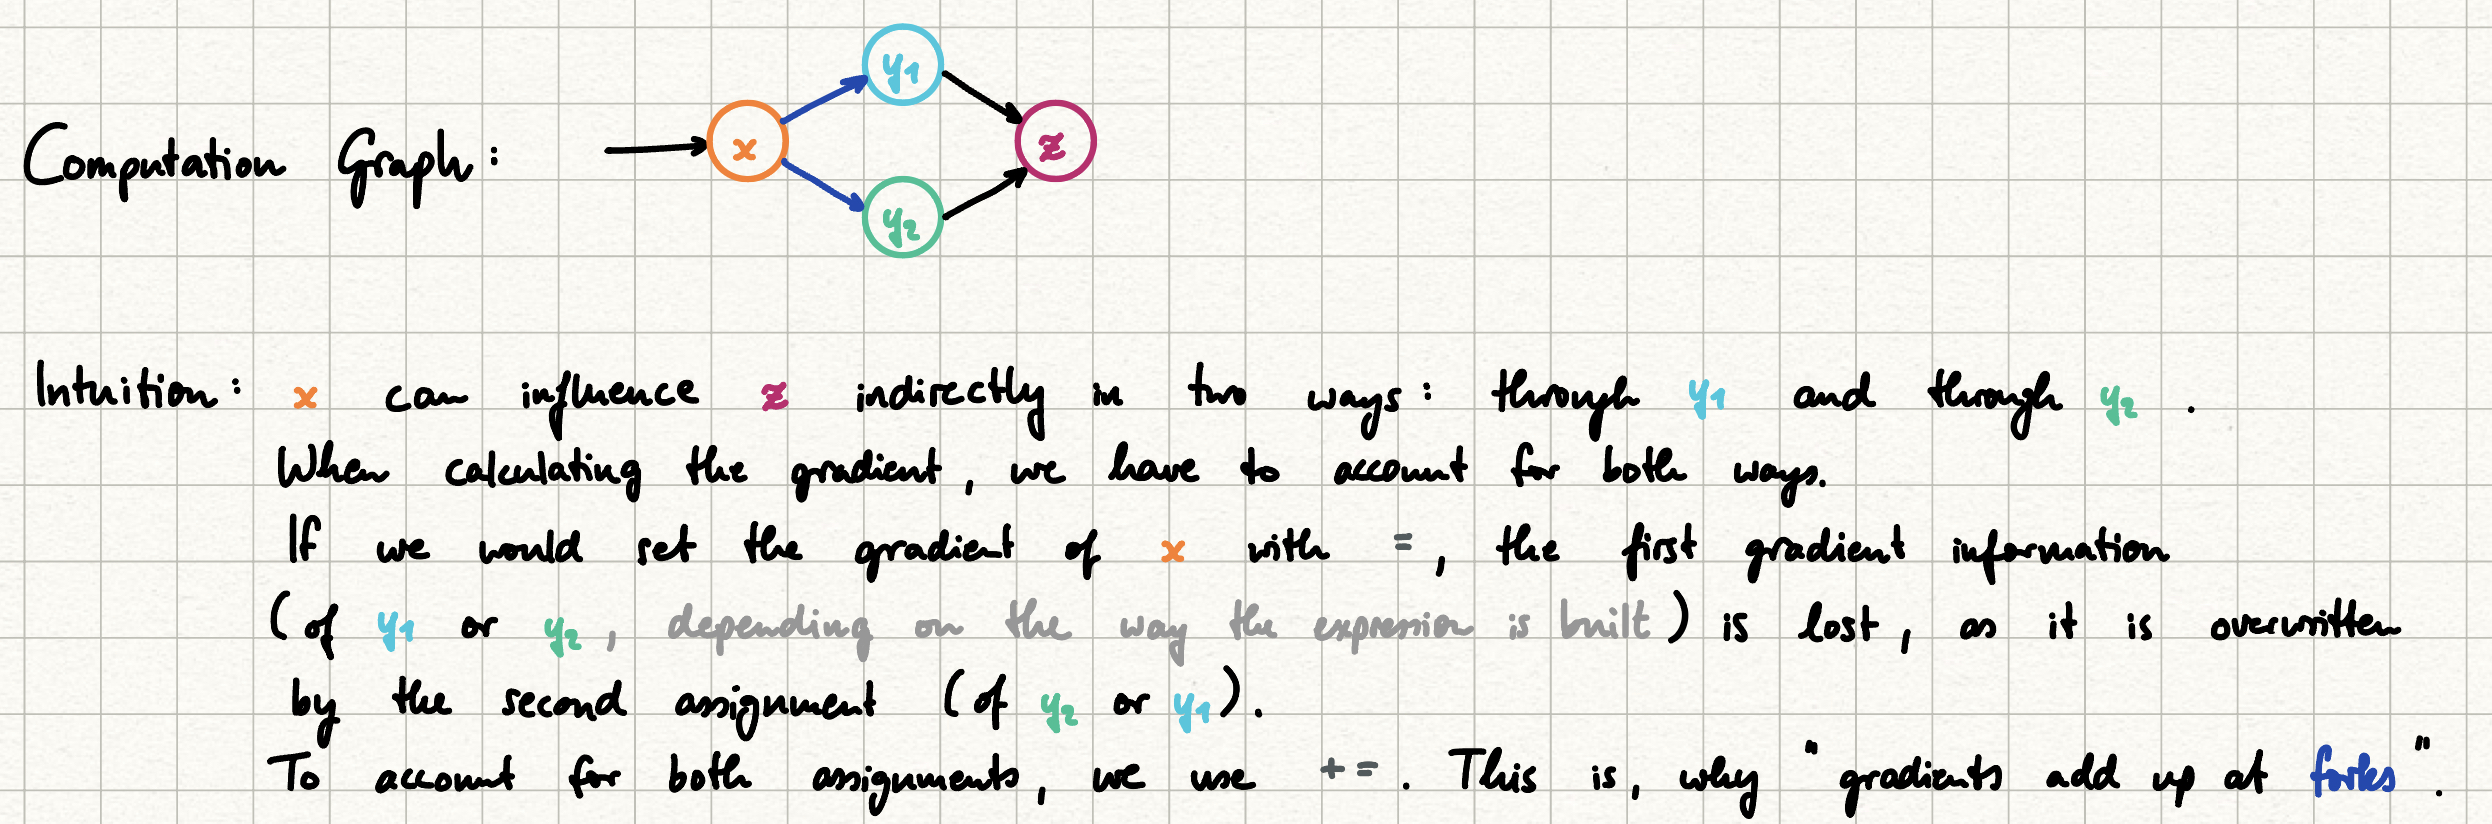 y1
Computation Graph: x z
y2
Intuition: x can influence z indirectly in two ways: through y1 and through y2.
When calculating the gradient, we have to account for both ways.
If we would set the gradient of x with =, the first gradient information
(of y1 or y2, depending on the way the expression is built) is lost, as it is overwritten
by the second assignment (of y2 or y1).
To account for both assignments, we use +=. This is, why "gradients add up at forks".